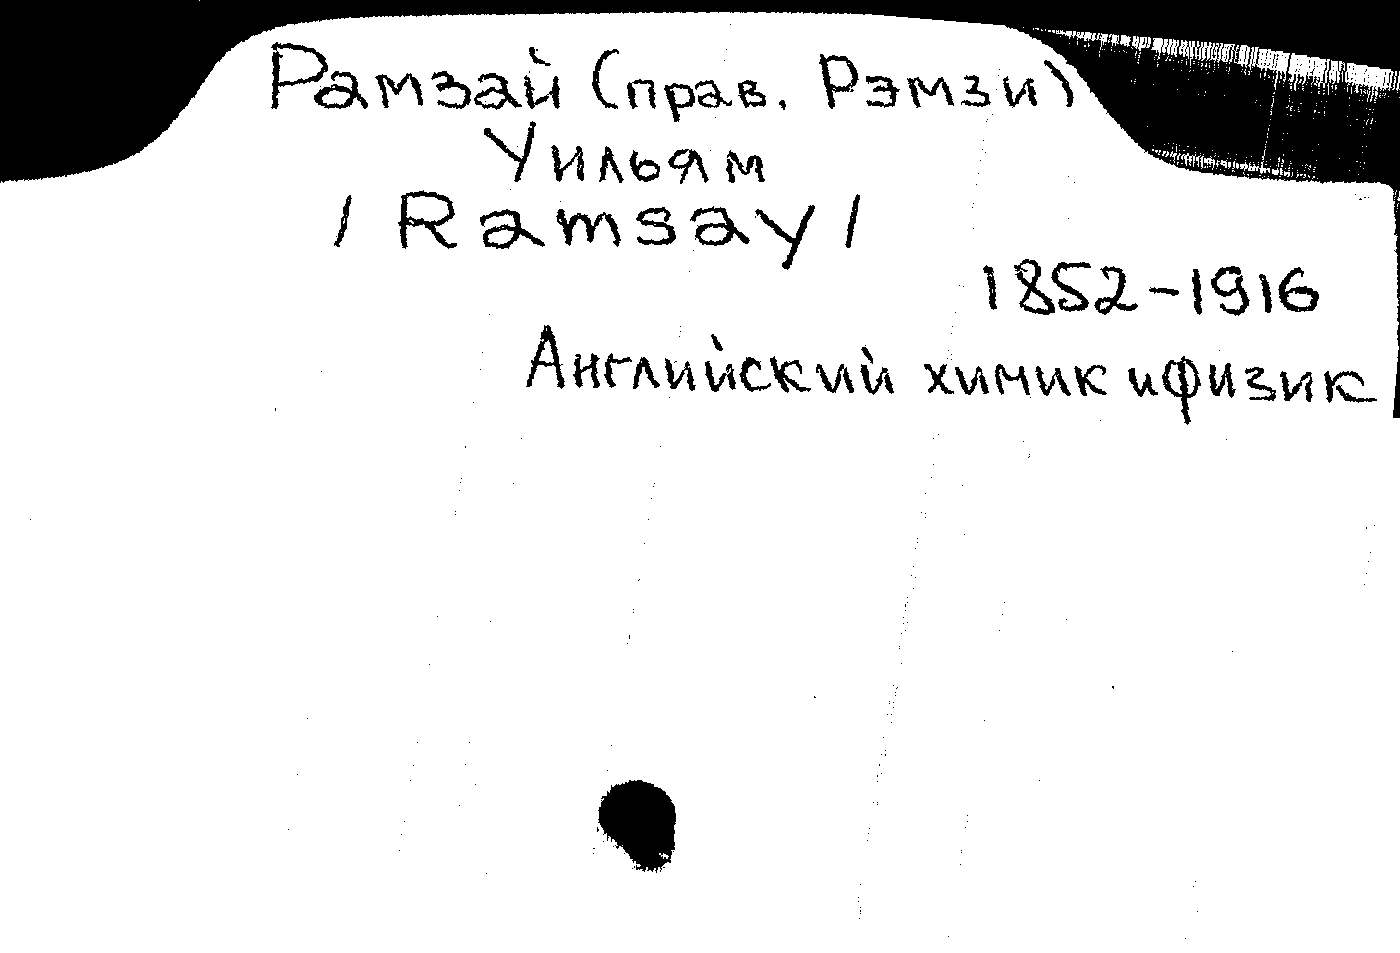 Рамзай (прав. Рэмзи)
Уильям
/ Ramsay /
1852-1916
Английский химик и физик